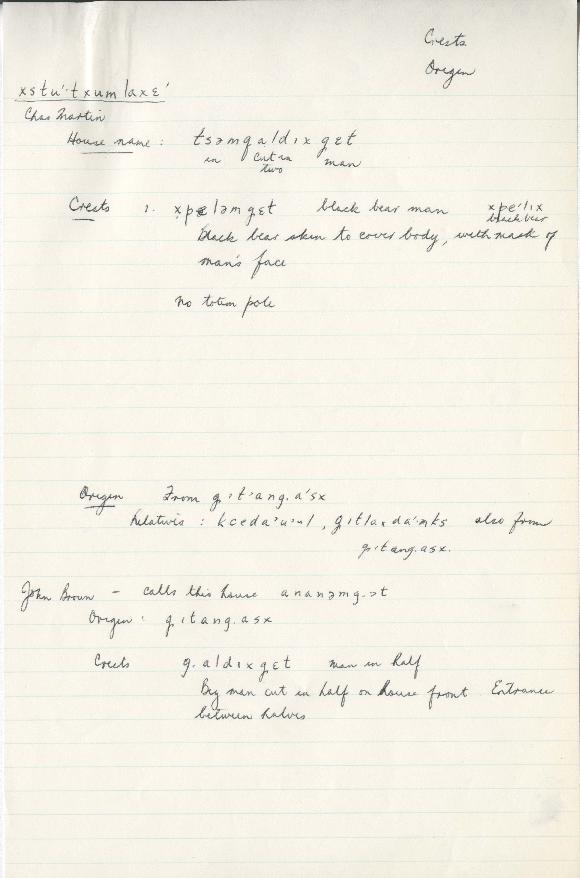 Crests
Origin
xstu'·txumlaxɛ'
Chas Martin
House name: tsəmqaldıx gɛt
in cut in two man
Crests 1. xpɛləmgɛt black bear man xpɛ'lıx
black bear
black bear skin to cover body, with mask of
man's face
no totem pole
Origin From
Relatives: also from
gıtang.asx.
John Brown - calls this house
Origin: gıtang.asx
Crests g.aldıxgɛt man in half
Big man cut in half on house front. Entrance
between halves